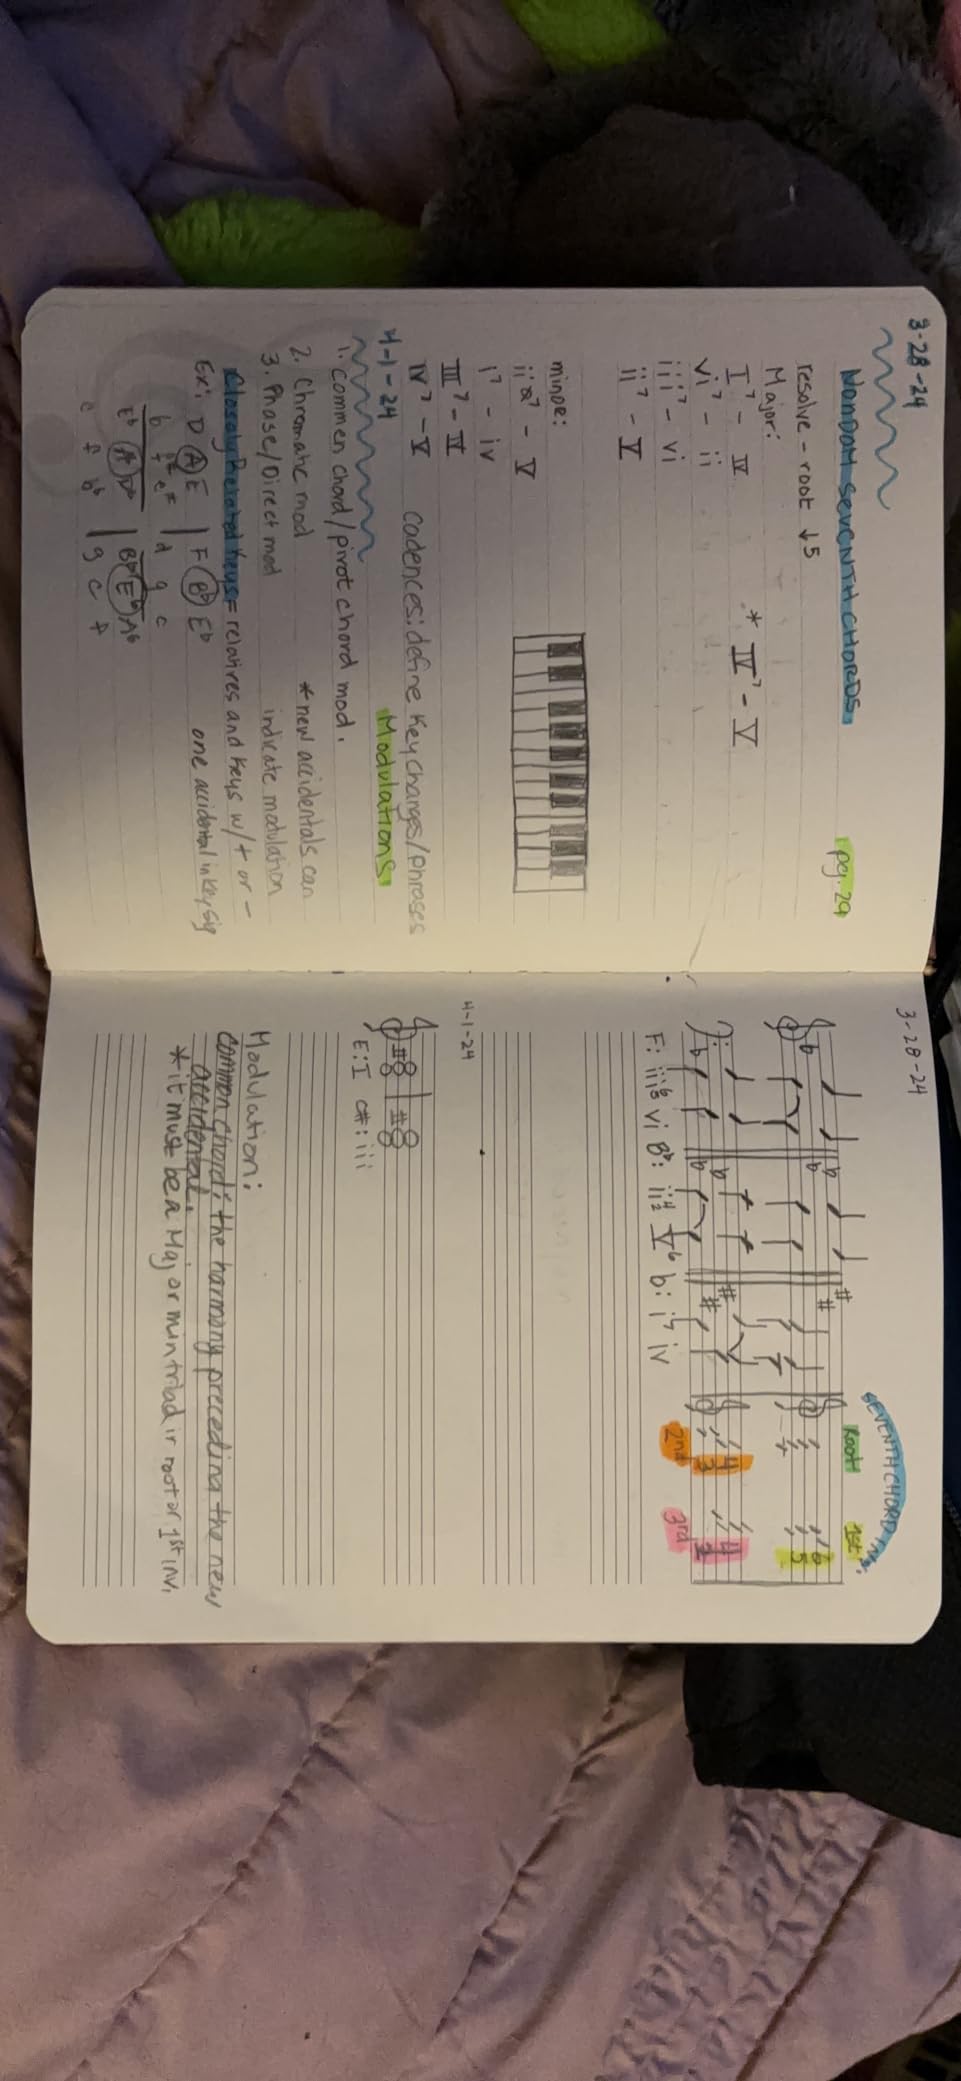 3-28-24
NONDOM SEVENTH CHORDS
pg. 29
resolve - root ↓5
Major:
I⁷ - IV
* IV⁷ - V
vi⁷ - ii
iii⁷ - vi
ii⁷ - V
minor:
iiø⁷ - V
i⁷ - iv
III⁷ - VI
iv⁷ - V
cadences: define key changes/phrases
4-1-24
Modulations
1. Commen chord/pivot chord mod.
2. Chromatic mod
*new accidentals can
3. Phase/Direct mod
indicate modulation
Closely related keys = relatives and keys w/ + or -
Ex: D A E | F B♭ E♭
one accidental in key sig
b f# c# | d g c
E♭ A♭ D♭ | B♭ E♭ A♭
c f b♭ | g c f
3-28-24
SEVENTH CHORD
Root
1st
6
5
4
3
4
2
2nd
3rd
F: iii⁶₅ vi B♭: ii⁴₂ V⁶ b: i⁷ iv
4-1-24
E: I c#: iii
Modulation:
common chord: the harmony preceding the new
accidental.
*it must be a Maj or min triad ir root or 1st inv.